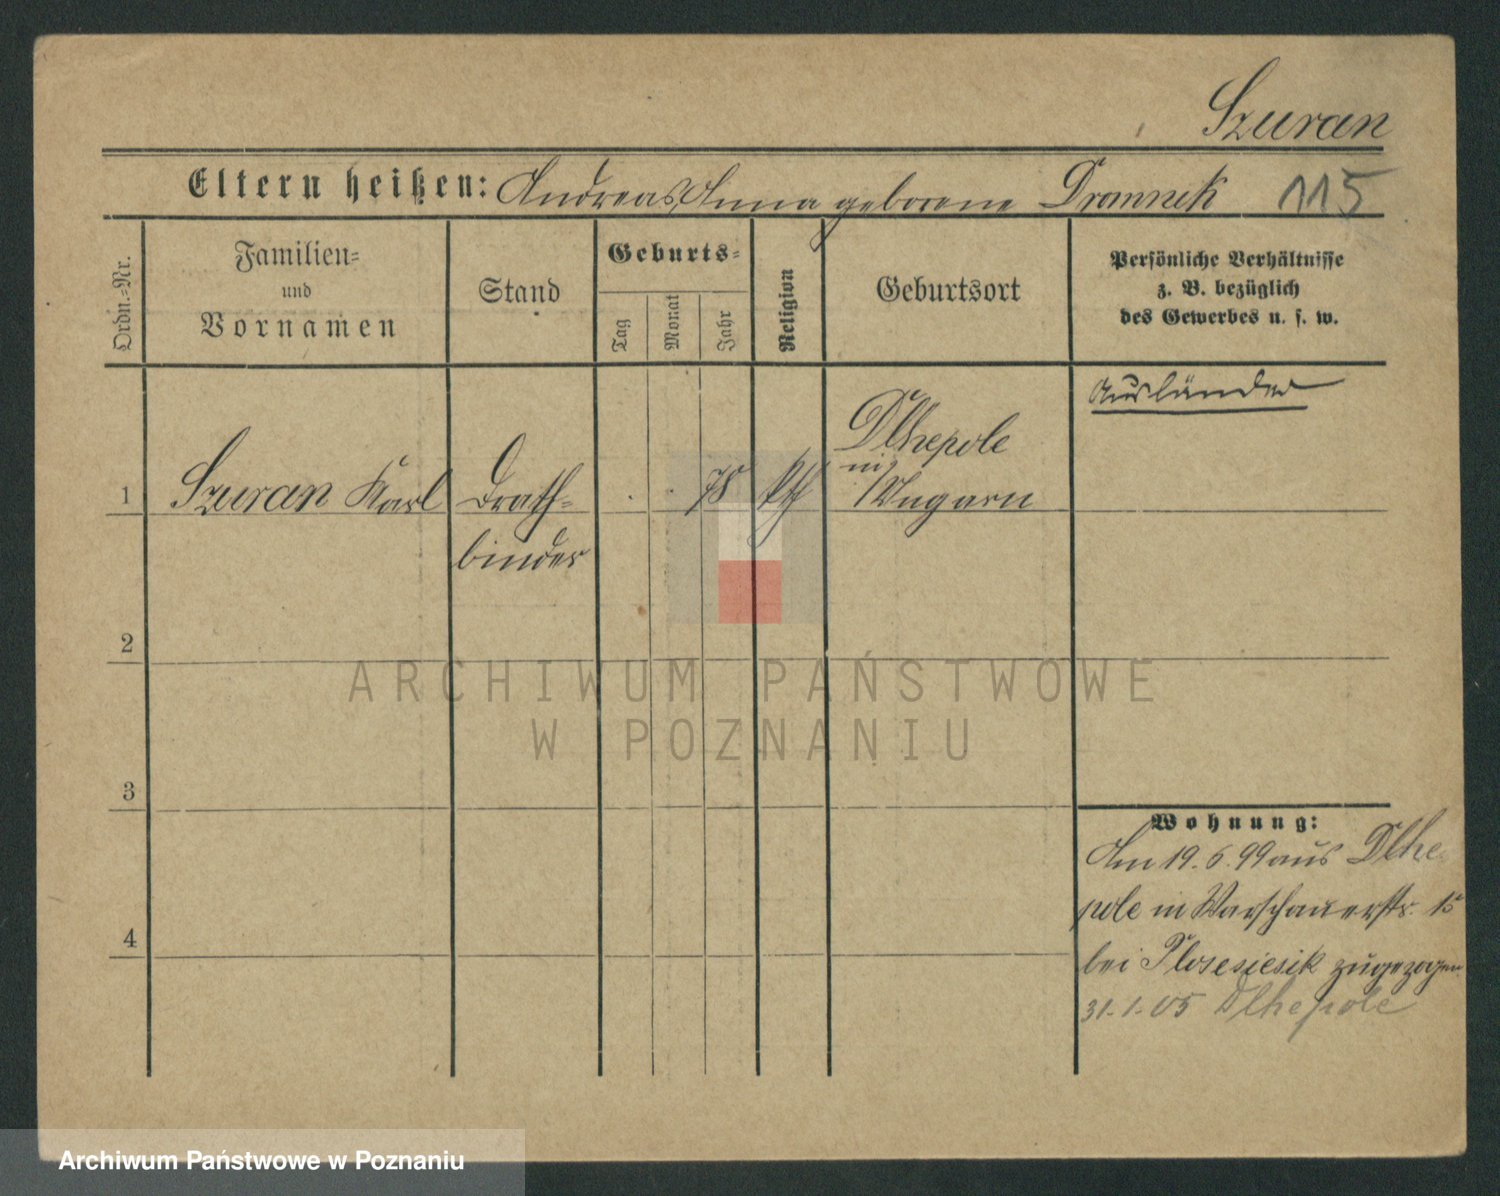 Szuran
Eltern heißen: Andreas, Anna geborene Dromnek 115
Ordn.-Nr.
Familien-
und
Vornamen
Stand
Geburts-
Tag
Monat
Jahr
Religion
Geburtsort
Persönliche Verhältnisse
z. B. bezüglich
des Gewerbes u. s. w.
Ausländer
1 Szuran Karl
Drath-
binder
78
kth
Dlhepole
in
Ungarn
2
3
4
Wohnung:
Am 19.6.99 aus Dlhe
pole in Warschauerstr. 15
bei zugezogen
31.1.05 Dlhepole
ARCHIWUM PAŃSTWOWE
W POZNANIU
Archiwum Państwowe w Poznaniu